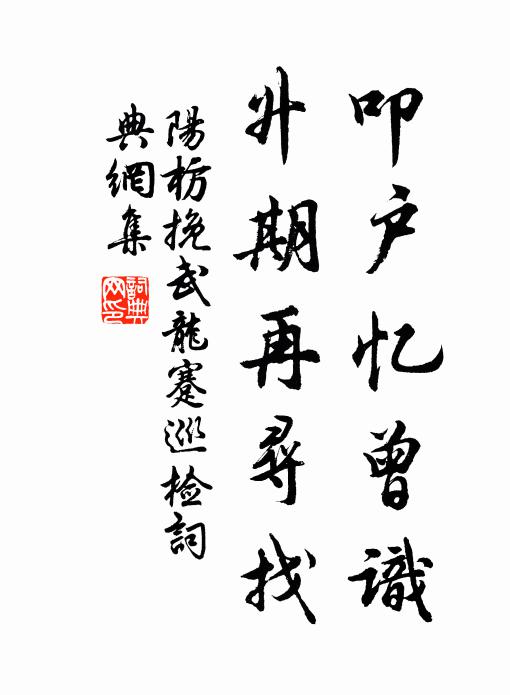 叩户忆曾識
外期再尋找
陽枋挽武龍蹇巡檢詞
典網集
詞典
网印